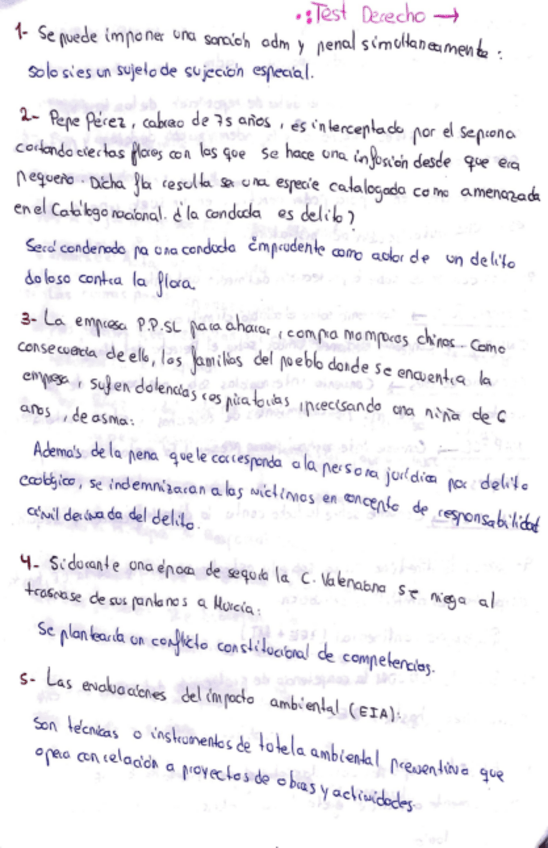 ·: Test Derecho →
1- Se puede imponer una sanción adm y penal simultaneamente:
solo si es un sujeto de sujeción especial.
2- Pepe Pérez, cabreo de 75 años, es interceptado por el seprona
cortando ciertas flores con las que se hace una infusión desde que era
pequeño. Dicha flor resulta ser una especie catalogada como amenazada
en el Catálogo nacional. ¿la conducta es delito?
Será condenado por una conducta imprudente como autor de un delito
doloso contra la flora.
3- La empresa P.P.SL para ahorrar, compra mamparas chinas. Como
consecuencia de ello, las familias del pueblo donde se encuentra la
empresa, sufren dolencias respiratorias, precisando una niña de 6
años, de asma:
Además de la pena que le corresponda a la persona jurídica por delito
ecológico, se indemnizaran a las victimas en concepto de responsabilidad
civil derivada del delito.
4- Si durante una época de sequía la C. Valenciana se niega al
trasvase de sus pantanos a Murcia:
Se plantearía un conflicto constitucional de competencias.
5- Las evaluaciones del impacto ambiental (EIA):
Son técnicas o instrumentos de tutela ambiental preventiva que
opera con relación a proyectos de obras y actividades.